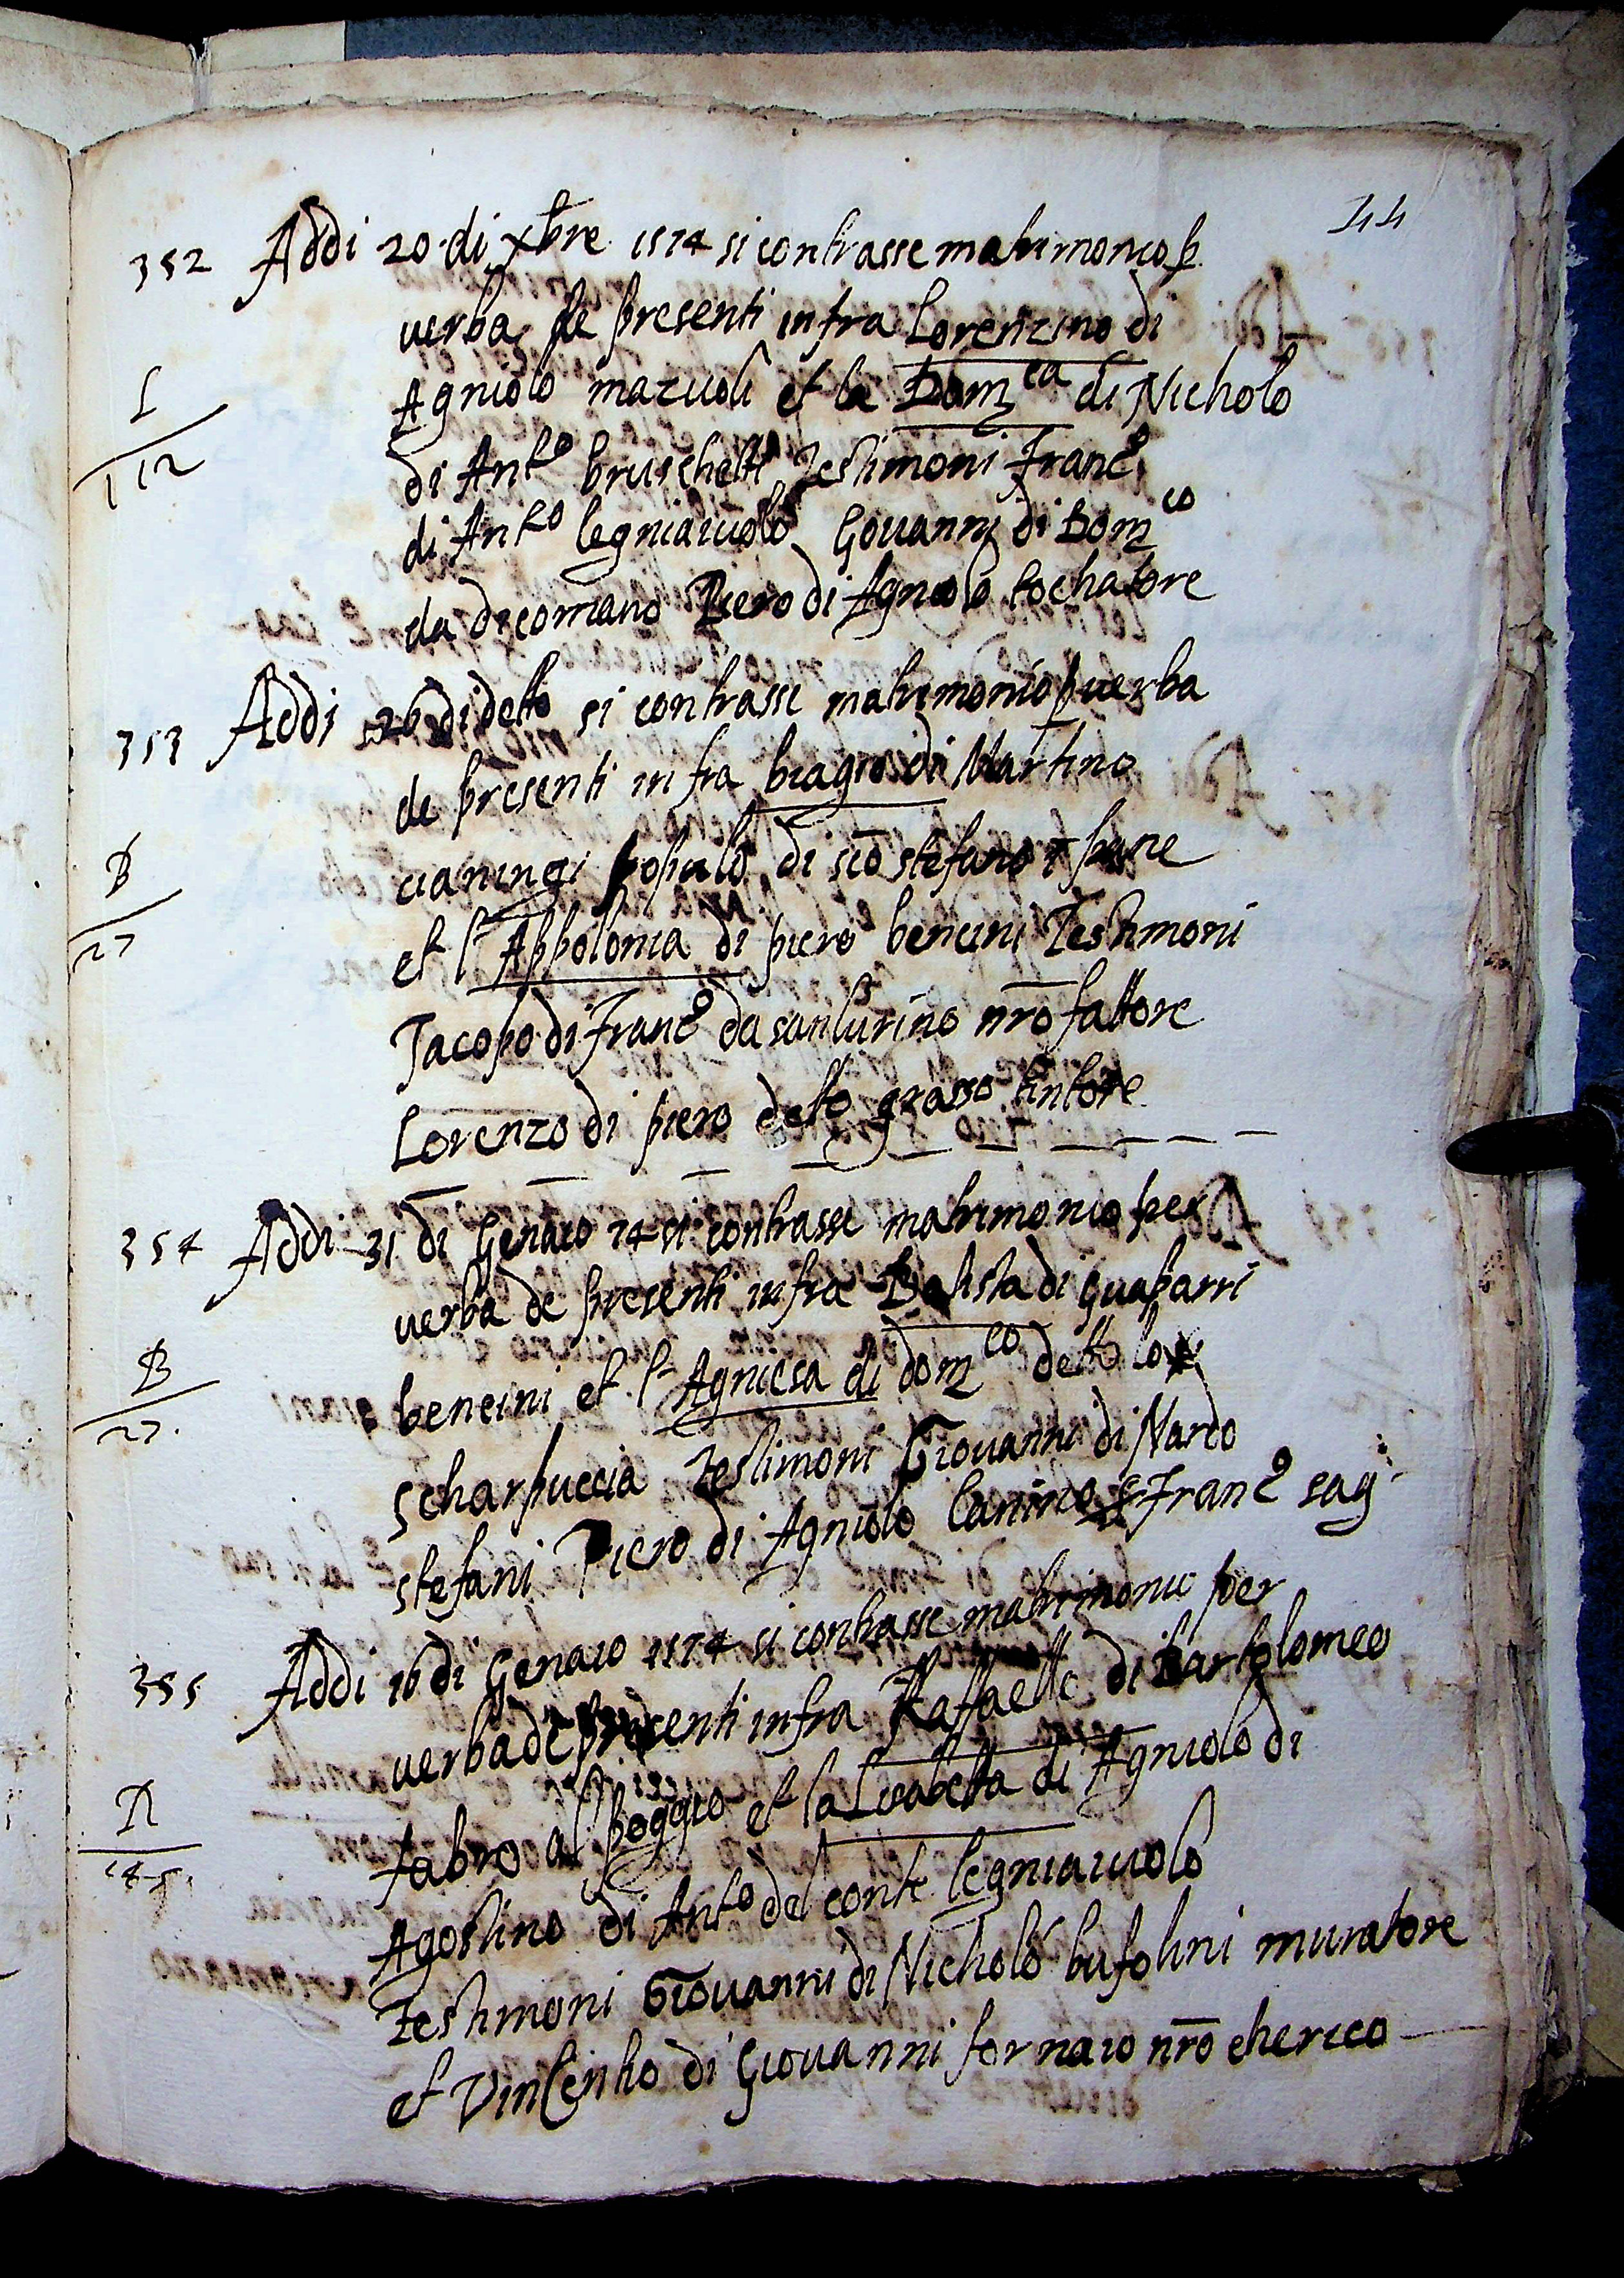 44
352 Addi 20 di xbre 1574 si contrasse matrimonio p
verba de presenti infra Lorenzino di
L
112
Agniolo mazuoli et la Dom.ca di Nicholo
di Ant.o bruschetti Testimoni Franc.o
di Ant.o legniaiuolo Govanni di Dom.co
da dicomano Piero di Agnolo tochatore
353 Addi 26 di detto si contrasse matrimonio p verba
de presenti infra biagio di Martino
B
27
cianingi popolo di s.to stefano
et l' Appolonia di piero bencini Testimoni
Jacopo di Franc.o da santurino nro fattore
Lorenzo di piero detto grasso tintore
354 Addi 31 di Genaio 74 si contrasse matrimonio per
verba de presenti infra Batista di Guaparri
B
27.
bencini et l' Agniesa di dom.co detto lo
scharpuccia Testimoni Giovanni di Nardo
stefani Piero di Agniolo Franc.o sag.
355 Addi 16 di Genaio 1574 si contrasse matrimonio per
verba de presenti infra Raffaello di Bartolomeo
R
145
fabro al poggio et la Lisabetta di Agniolo di
Agostino di Ant.o del conte legniaiuolo
Testimoni Giovanni di Nicholo bufolini muratore
et Vincentio di Giovanni fornaio nro cherico